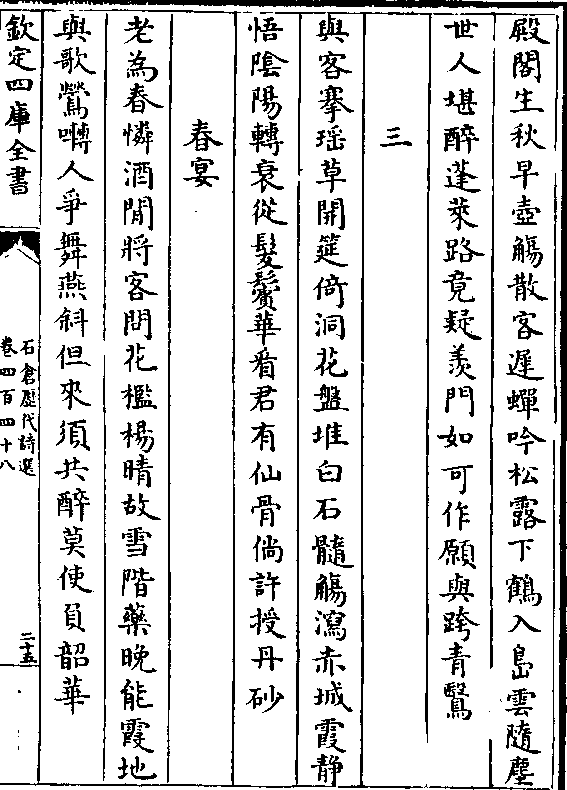 殿閣生秋早壺觴散客遲蟬吟松露下鶴入島雲隨塵
世人堪醉蓬萊路竟疑羨門如可作願與跨青鷖
三
與客搴瑶草開筵倚洞花盤堆白石髓觴瀉赤城霞静
悟陰陽轉衰從髮鬢華看君有仙骨倘許授丹砂
春宴
老為春憐酒閒將客問花檻楊晴故雪階藥晚能霞地
與歌鶯囀人爭舞燕斜但來須共醉莫使負韶華
欽定四庫全書
石倉歷代詩選
卷四百四十八
二十五